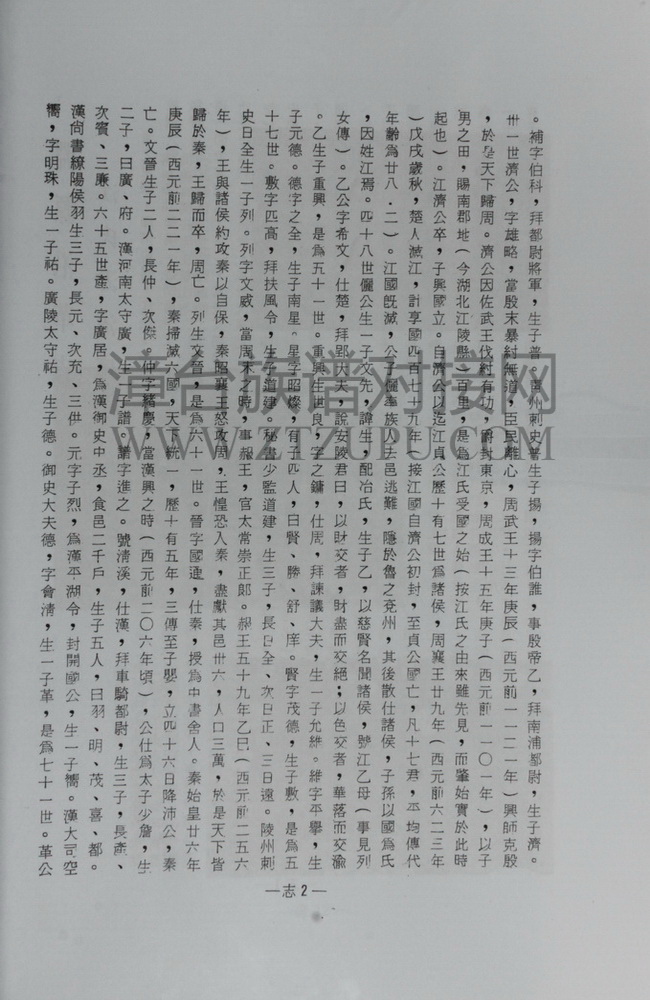 。補字伯科，拜都尉將軍，生子普，廣州刺史普生子揚，揚字伯誰，事殷帝乙，拜南浦都尉，生子濟。
卅一世濟公，字雄略，當殷末暴紂無道，臣民離心，周武王十三年庚辰（西元前一一二一年）興師克殷
，於是天下歸周。濟公因佐武王伐紂有功，爵封東京，周成王十五年庚子（西元前一一〇一年），以子
男之田，賜南郡地（今湖北江陵縣）百里，是為江氏受國之始（按江氏之由來雖先見，而肇始實於此時
起也）。江濟公卒，子興國立。自濟公以迄江貞公歷十有七世為諸侯，周襄王廿九年（西元前六二三年
）戊戌歲秋，楚人滅江，計享國四百七十九年（接江國自濟公初封，至貞公國亡，凡十七君，平均傳代
年齡為廿八．二）。江國既滅，公子僵率族人去邑逃難，隱於魯之兗州，其後散仕諸侯，子孫以國為氏
，因姓江焉。四十八世儷公生一子文先，諱生，配冶氏，生子乙，以慈賢名聞諸侯，號江乙母（事見列
女傳）。乙公字希文，仕楚，拜郢大夫，說安陵君曰，以財交者，財盡而交絕；以色交者，華落而交渝
。乙生子重興，是為五十一世。重興生世良，字之鏞，仕周，拜諫議大夫，生一子允維。維字平擧，生
子元德。德字之全，生子南星。星字昭燦，有子四人，曰賢、勝、舒、庠。賢字茂德，生子敷，是為五
十七世。敷字匹高，拜扶風令，生子道建。秘書少監道建，生三子，長曰全、次曰正、三曰遠。陵州刺
史日全生一子列。列字文威，當周末之時，事赧王，官太常崇正郎。赧王五十九年乙巳（西元前二五六
年），王與諸侯約攻秦以自保，秦昭襄王怒攻周，王惶恐入秦，盡獻其邑卅六，人口三萬，於是天下皆
歸於秦，王歸而卒，周亡。列生文晉，是為六十一世。晉字國運，仕秦，授為中書舍人。秦始皇廿六年
庚辰（西元前二二一年），秦掃滅六國，天下統一，歷十有五年，三傳至子嬰，立四十六日降沛公，秦
亡。文晉生子二人，長仲、次傑。仲字緒慶，當漢興之時（西元前二〇六年頃），公仕為太子少詹，生
二子，曰廣、府。漢河南太守廣，生子譜，譜字進之。號清溪，仕漢，拜車騎都尉，生三子，長產、
次賓、三廉。六十五世產，字廣居，為漢御史中丞，食邑二千戶，生子五人，曰羽、明、茂、喜、都。
漢尙書繚陽侯羽生三子，長元、次充、三供。元字子烈，為漢平湖令，封開國公，生一子燆。漢大司空
燆，字明珠，生一子祐。廣陵太守祐，生子德。御史大夫德，字會清，生一子革，是為七十一世。革公
—志2—
漳台族譜对接网
WWW.ZTZUPU.COM